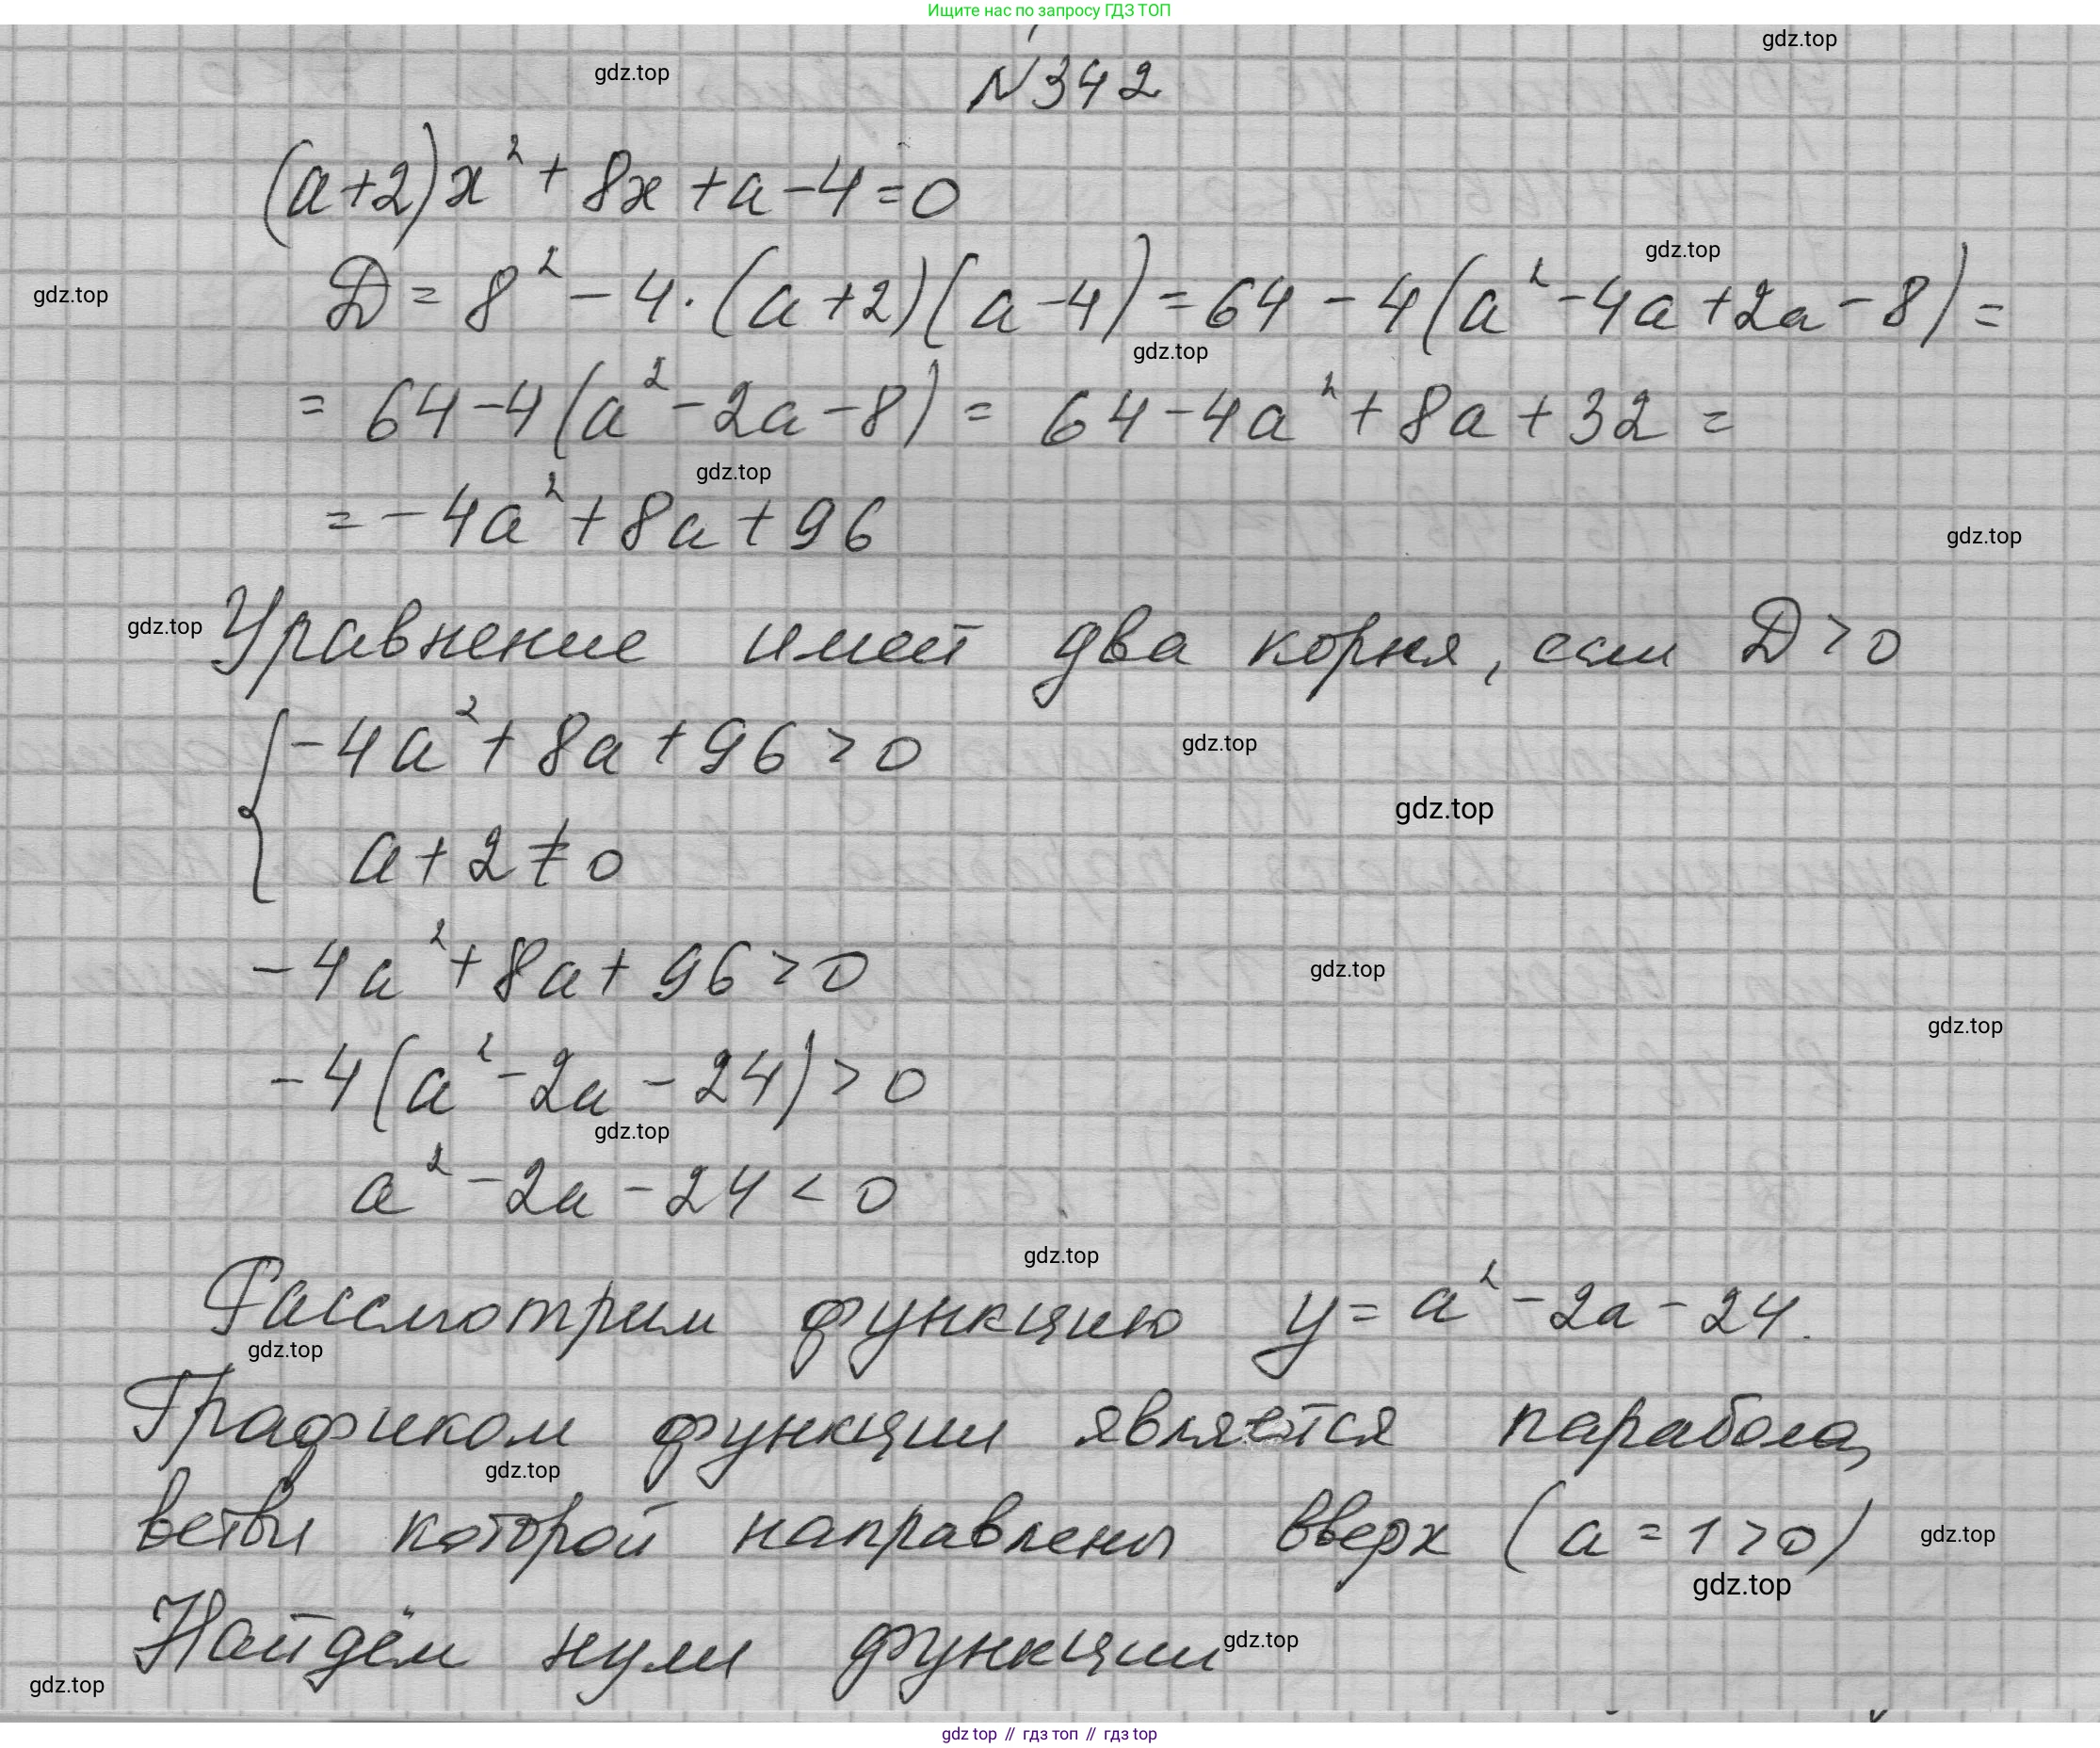 Ищите нас по запросу ГДЗ ТОП
gdz.top
gdz.top
N342
(a+2)x²+8x+a-4=0
gdz.top
gdz.top
D=8²-4·(a+2)(a-4)=64-4(a²-4a+2a-8)=
gdz.top
=64-4(a²-2a-8)=64-4a²+8a+32=
gdz.top
=-4a²+8a+96
gdz.top
gdz.top
Уравнение имеет два корня, если D>0
{-4a²+8a+96>0
gdz.top
gdz.top
a+2≠0
-4a²+8a+96>0
gdz.top
gdz.top
-4(a²-2a-24)>0
gdz.top
a²-2a-24<0
gdz.top
Рассмотрим функцию y=a²-2a-24.
gdz.top
Графиком функции является парабола,
gdz.top
ветви которой направлены вверх (a=1>0)
gdz.top
gdz.top
Найдём нули функции
gdz.top
gdz.top
gdz top // гдз топ // гдз top